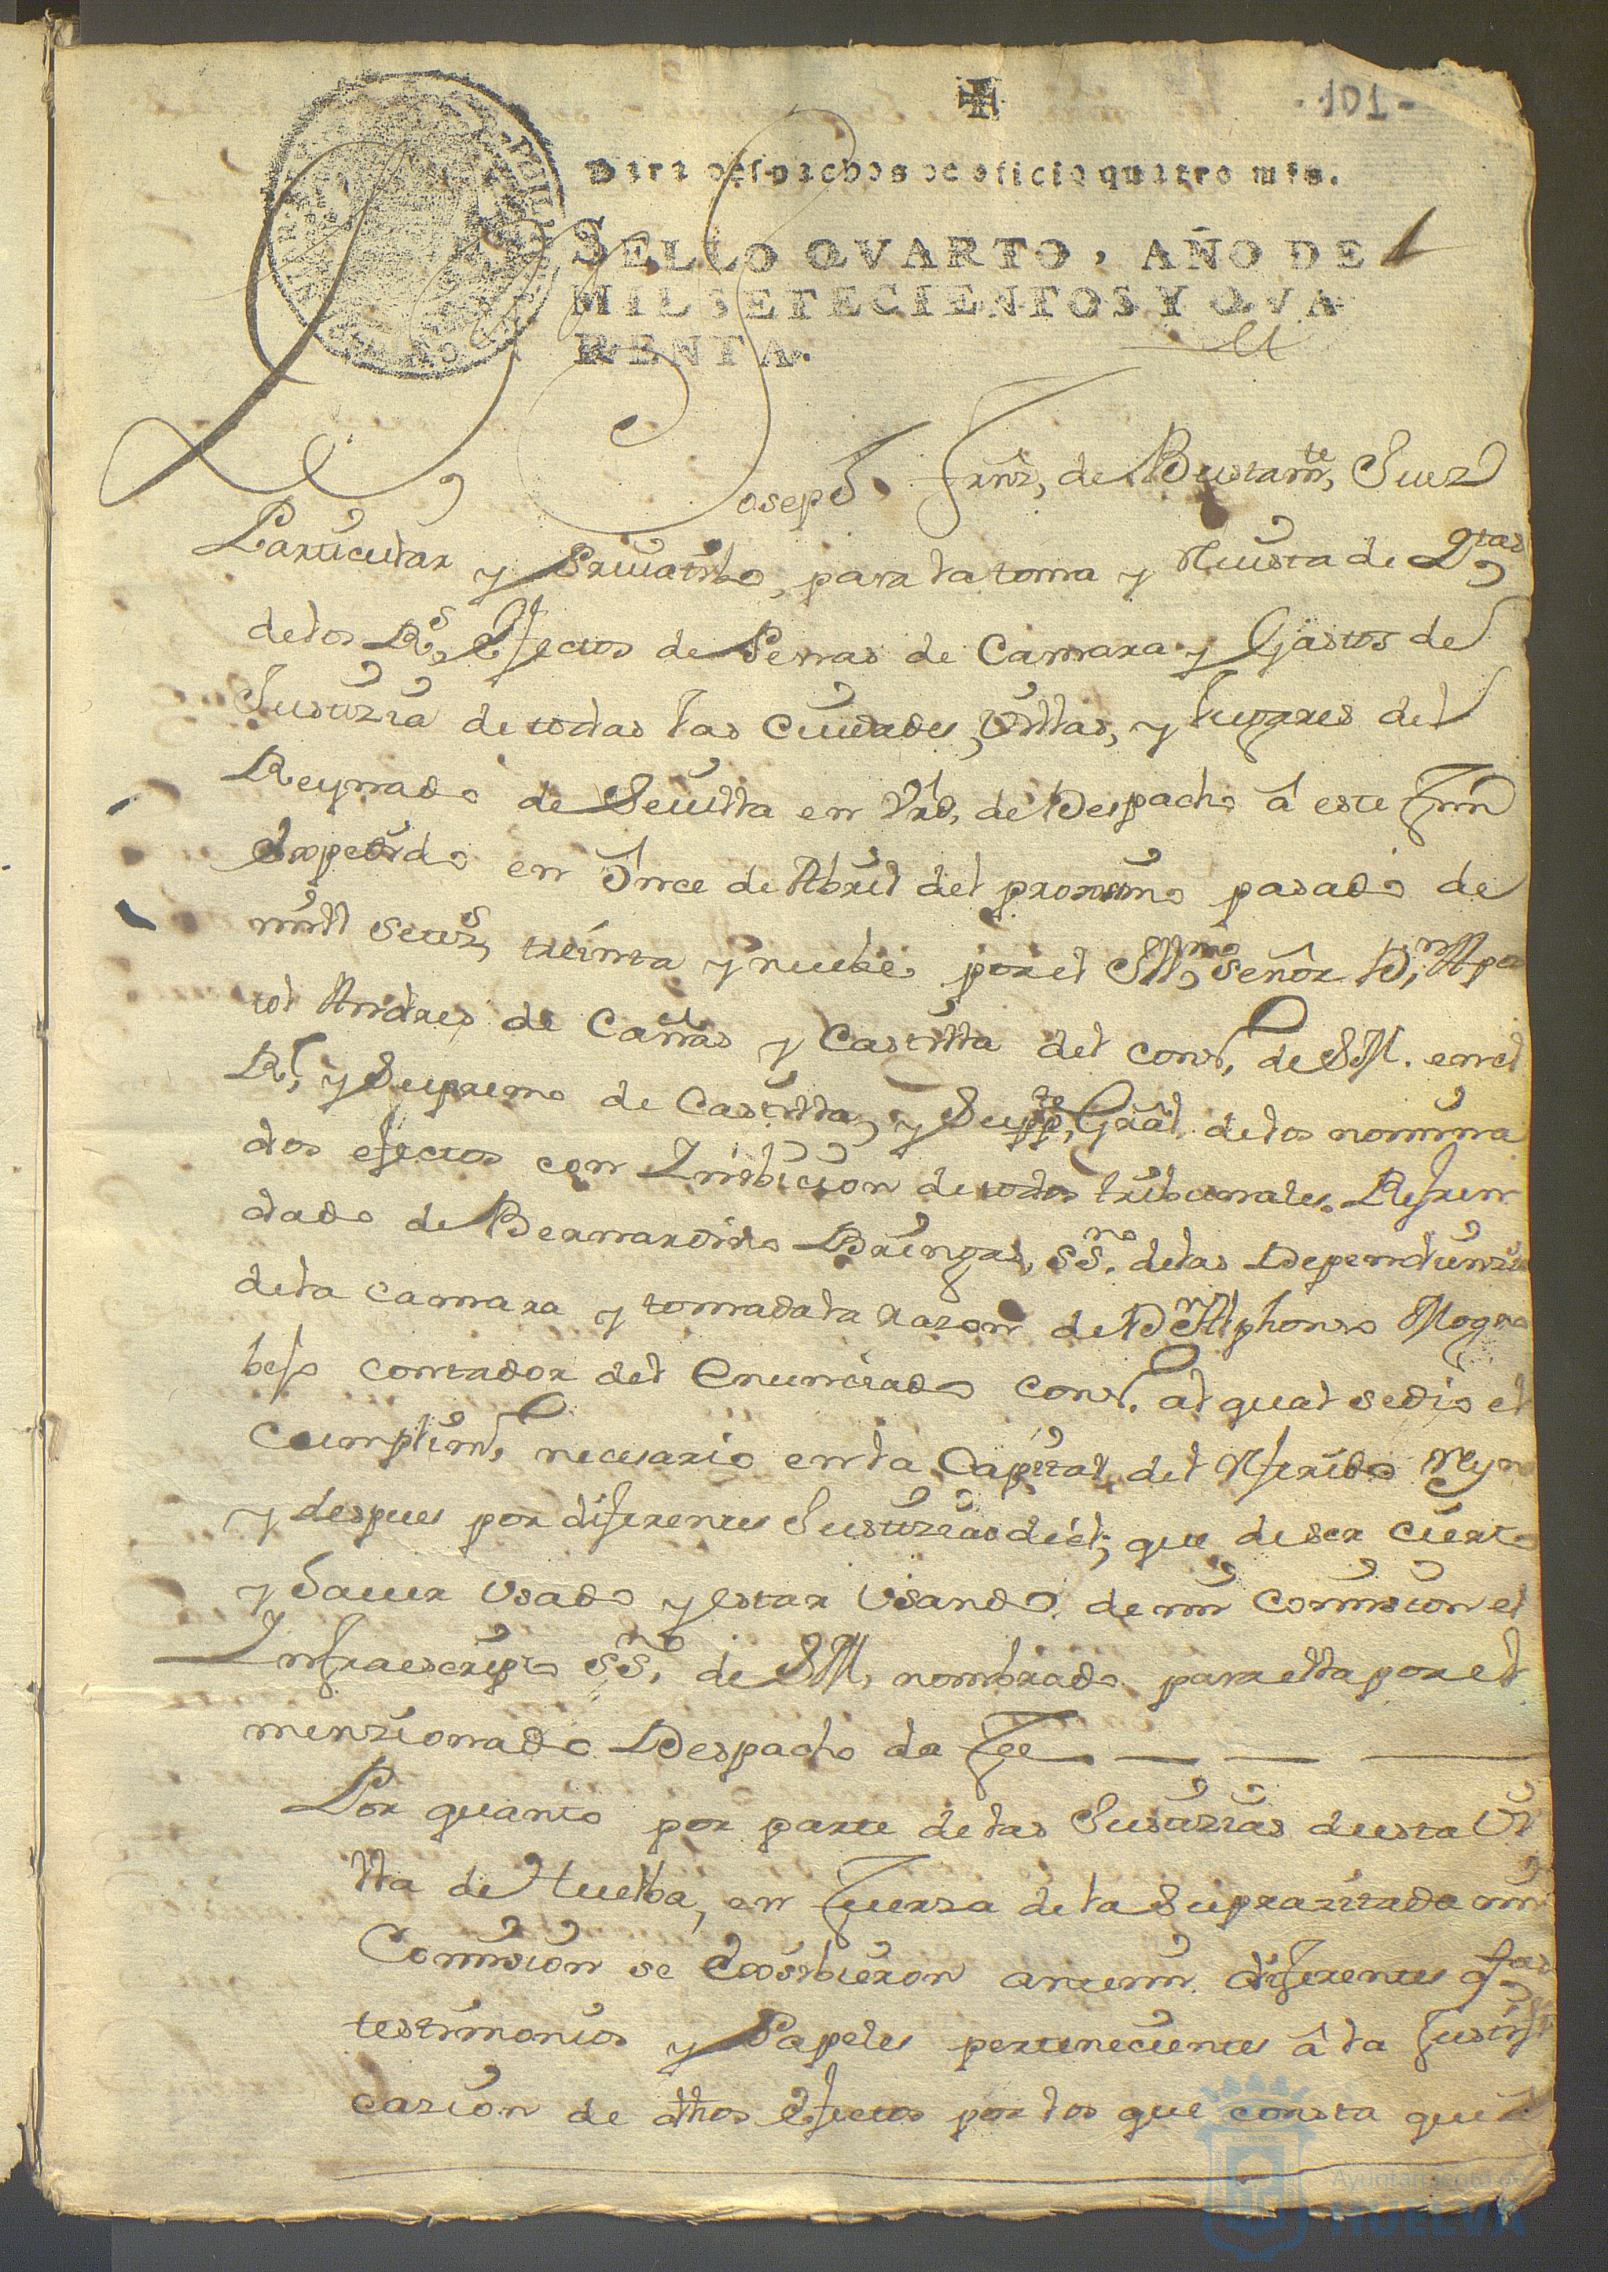 101
Para despachos de oficio quatro mrs.
SELLO QVARTO, AÑO DE
MIL SETECIENTOS Y QVA
RENTA.
D. Joseph Frnz, de Bustamte, Juez
Particular y Priuatibo, para la toma y Reuista de Qtas
de los Rs, Efectos de Penas de Camara y Gastos de
Justizia de todas las Ciudades, Villas, y lugares del
Reynado de Seuilla en Vrd, de Despacho â este fin
Expedido en Once de Abril del proximo pasado de
mill setezs, treinta y nuebe por el Illmo señor Dn Apos
tol Andres de Cañas y Castilla del Consº, de SM. en el
Rl, y Supremo de Castilla, y Suppte, Gral. de los nomina
dos efectos con Inibicion de todos tribunales. Refren
dado de Bernardino Bringas, SSno. de las Dependienzias
de la Camara y tomada la razon de Dn Alphonso Mogro
bejo Contador del Enunciado Consº. al qual se dio el
Cumplimtº, necesario en la Capital del Referido Reyno
y despues por diferentes Justizias de él; que de ser Cierto
y hauer Vsado y estar Vsando de mi Comision el
Infraescripto SSno. de SM, nombrado para ella por el
menzionado Despacho da Fee
Por quanto por parte de las Justizias de esta Vi
lla de Huelba, en fuerza de la Suprazitada mi
Comision se Exsibieron ante mi diferentes qtas
testimonios y Papeles pertenecientes â la Justifi
cazion de dhos Efectos por los que consta que
Ayuntamiento de
HUELVA